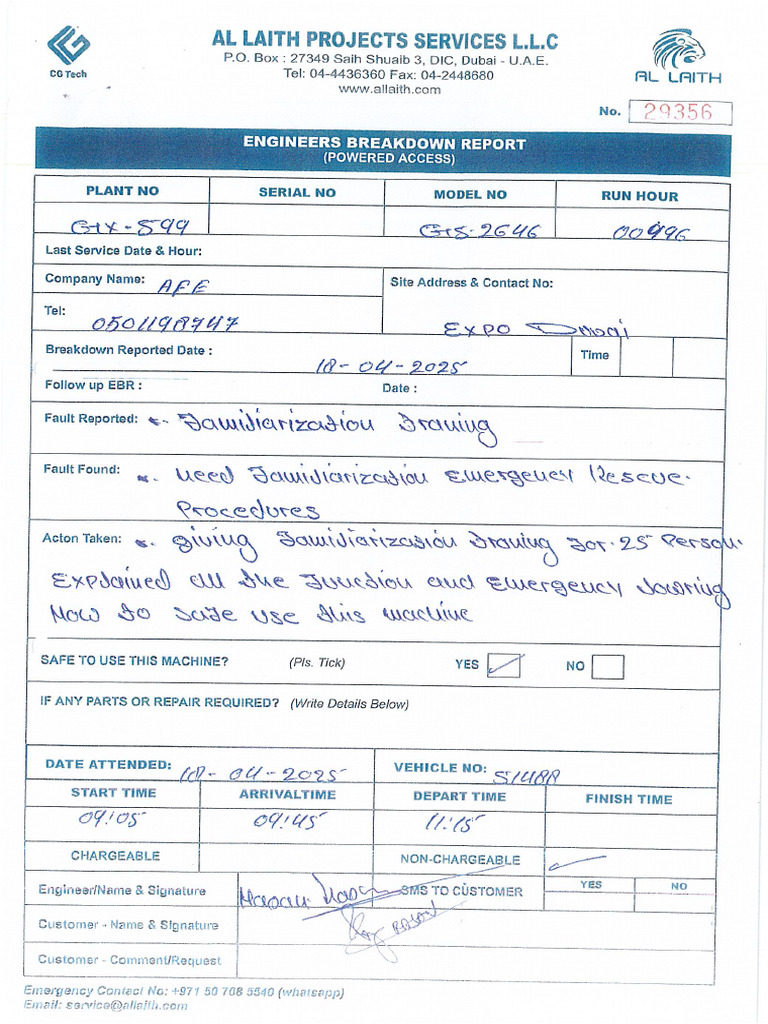 CG Tech
AL LAITH PROJECTS SERVICES L.L.C
P.O. Box : 27349 Saih Shuaib 3, DIC, Dubai - U.A.E.
Tel: 04-4436360 Fax: 04-2448680
www.allaith.com
AL LAITH
No. 29356
ENGINEERS BREAKDOWN REPORT
(POWERED ACCESS)
PLANT NO SERIAL NO MODEL NO RUN HOUR
GTX-599 GTS-2646 00996
Last Service Date & Hour:
Company Name: AFE
Site Address & Contact No:
Tel: 0501198747
Expo Dubai
Breakdown Reported Date : 18-04-2025 Time
Follow up EBR : Date :
Fault Reported: Familiarization Training
Fault Found: Need Familiarization Emergency Rescue
Procedures
Acton Taken: Giving Familiarization Training For 25 Person.
Explained all the Function and Emergency Lowring
How to safe use this machine
SAFE TO USE THIS MACHINE? (Pls. Tick) YES NO
IF ANY PARTS OR REPAIR REQUIRED? (Write Details Below)
DATE ATTENDED: 18-04-2025 VEHICLE NO:
START TIME ARRIVALTIME DEPART TIME FINISH TIME
09:05 09:45 11:15
CHARGEABLE NON-CHARGEABLE
Engineer/Name & Signature Hasan SMS TO CUSTOMER YES NO
Customer - Name & Signature
Customer - Comment/Request
Emergency Contact No: +971 50 708 5540 (whatsapp)
Email: service@allaith.com